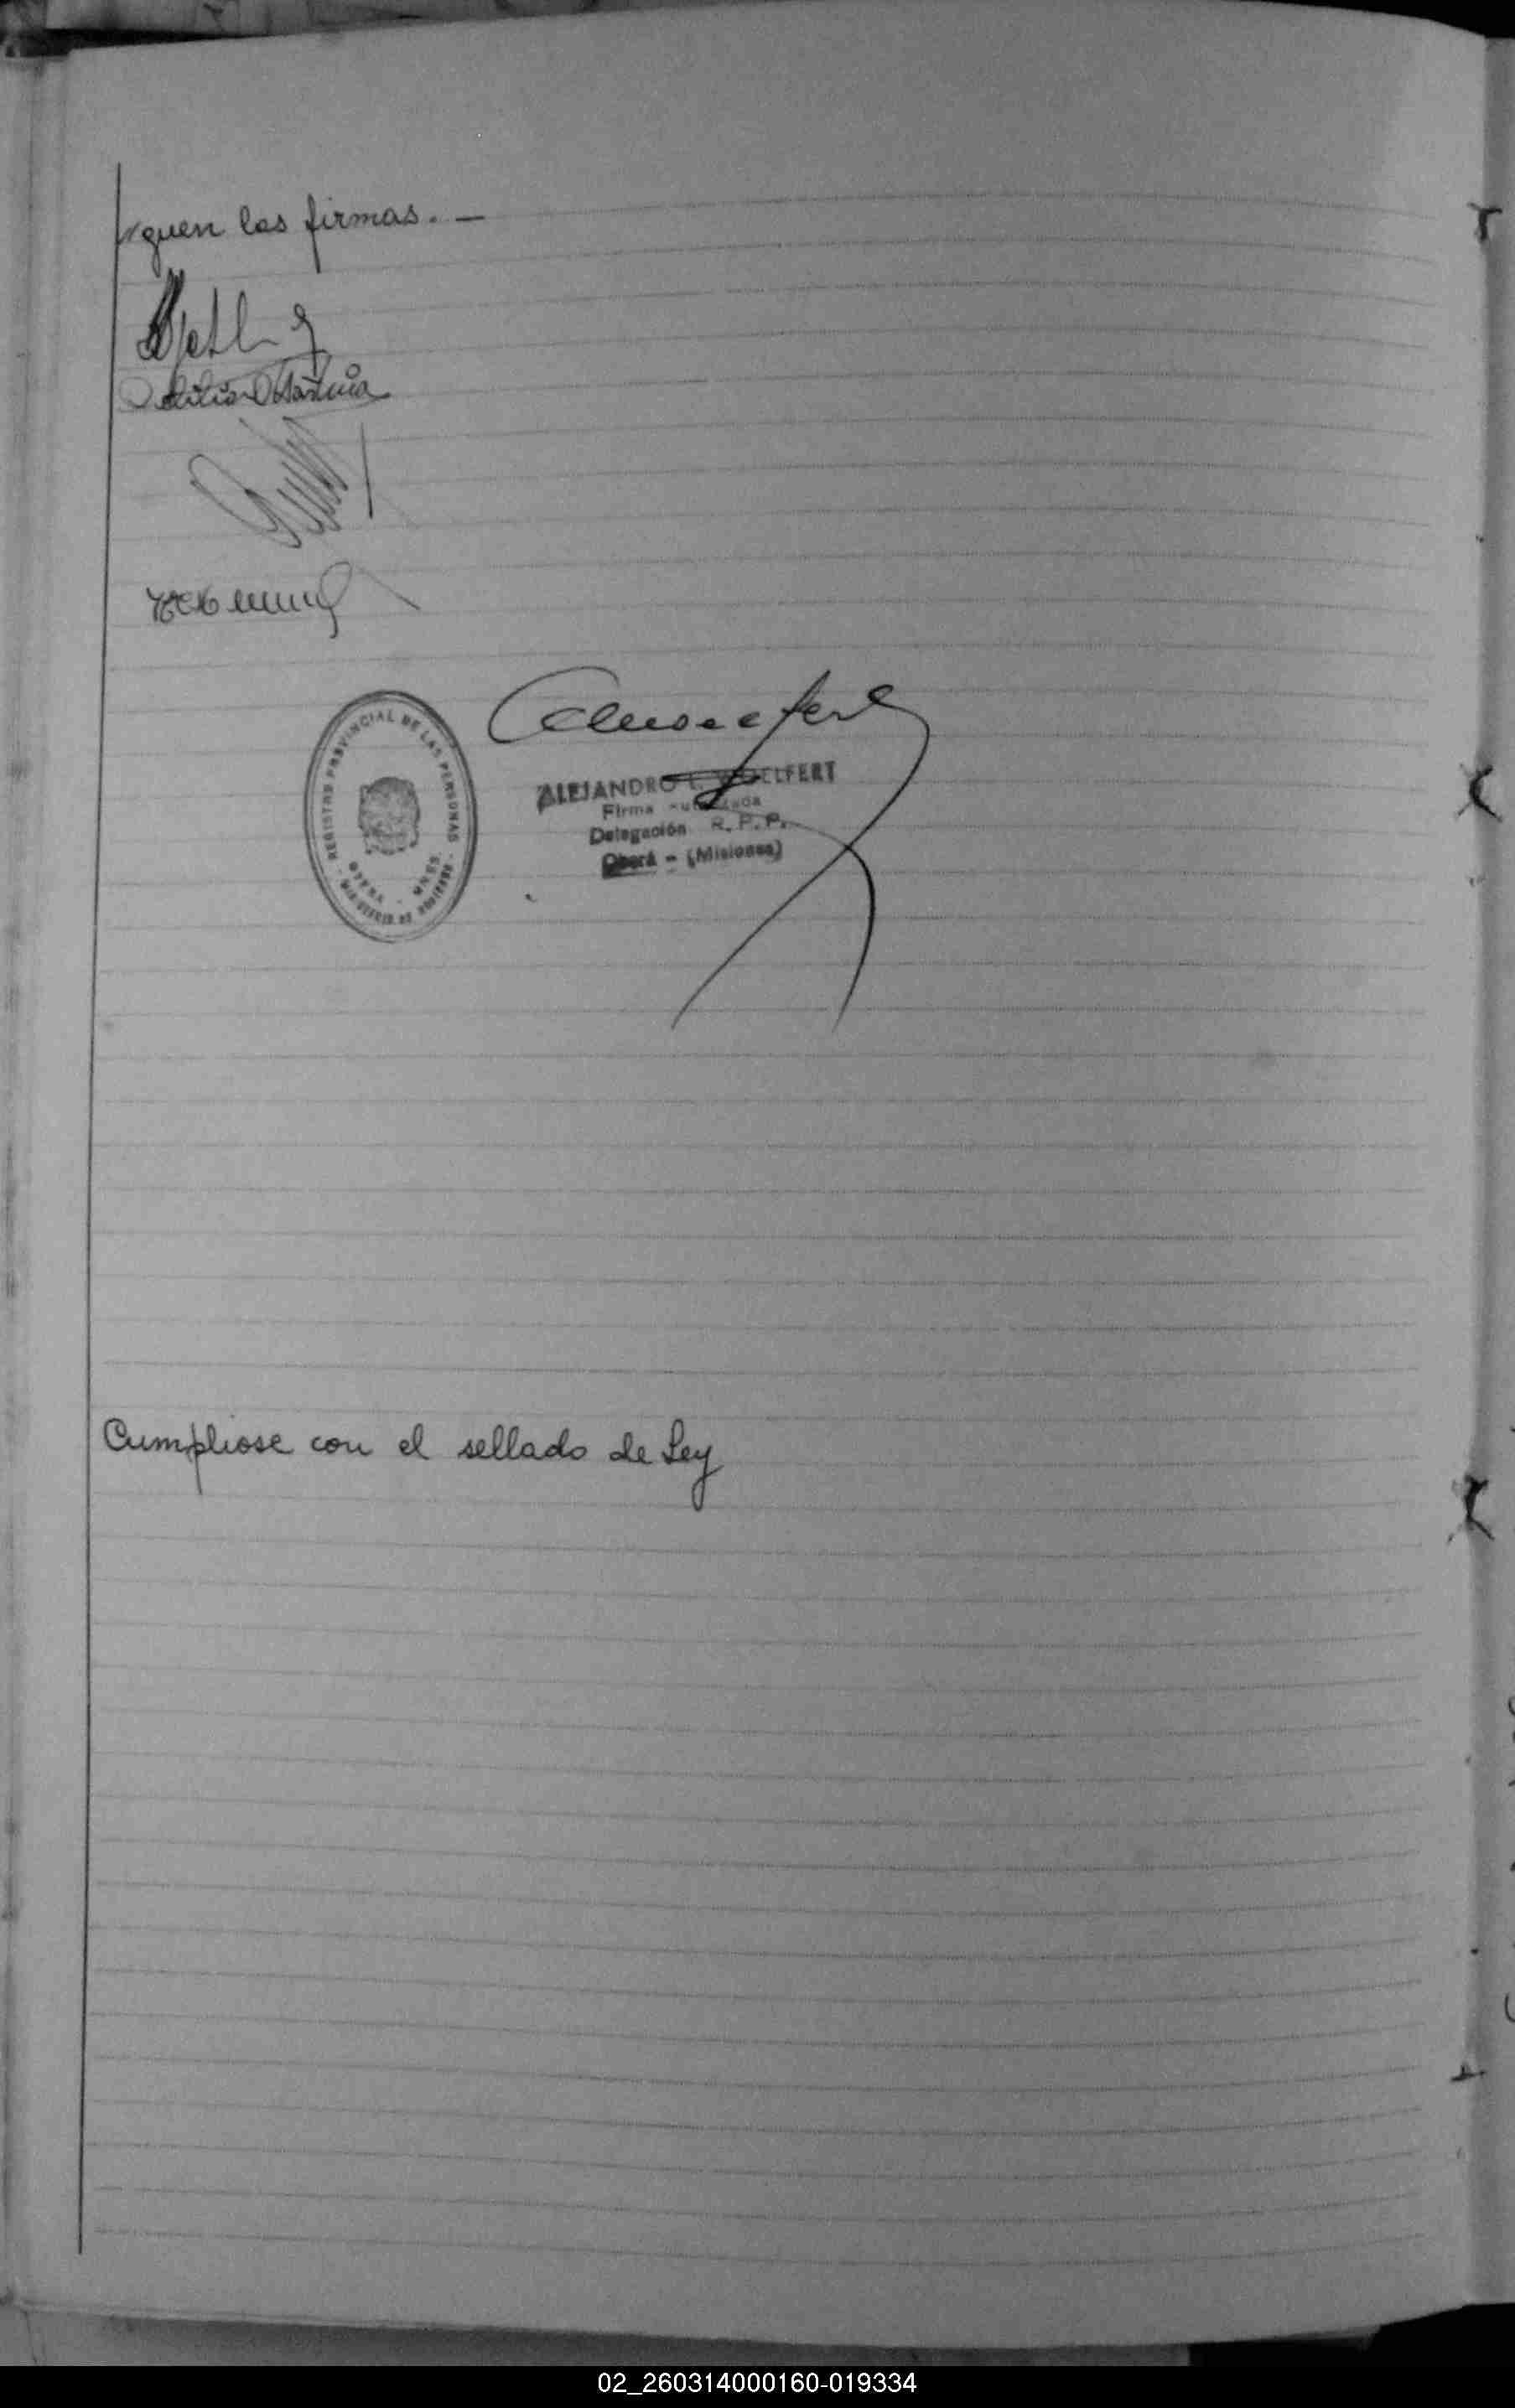 siguen las firmas. —
REGISTRO PROVINCIAL DE LAS PERSONAS
OBERA - MNES.
MINISTERIO DE GOBIERNO
ALEJANDRO L. WOELFERT
Firma Autorizada
Delegación R. P. P.
Oberá - (Misiones)
Cumpliose con el sellado de Ley
02_260314000160-019334